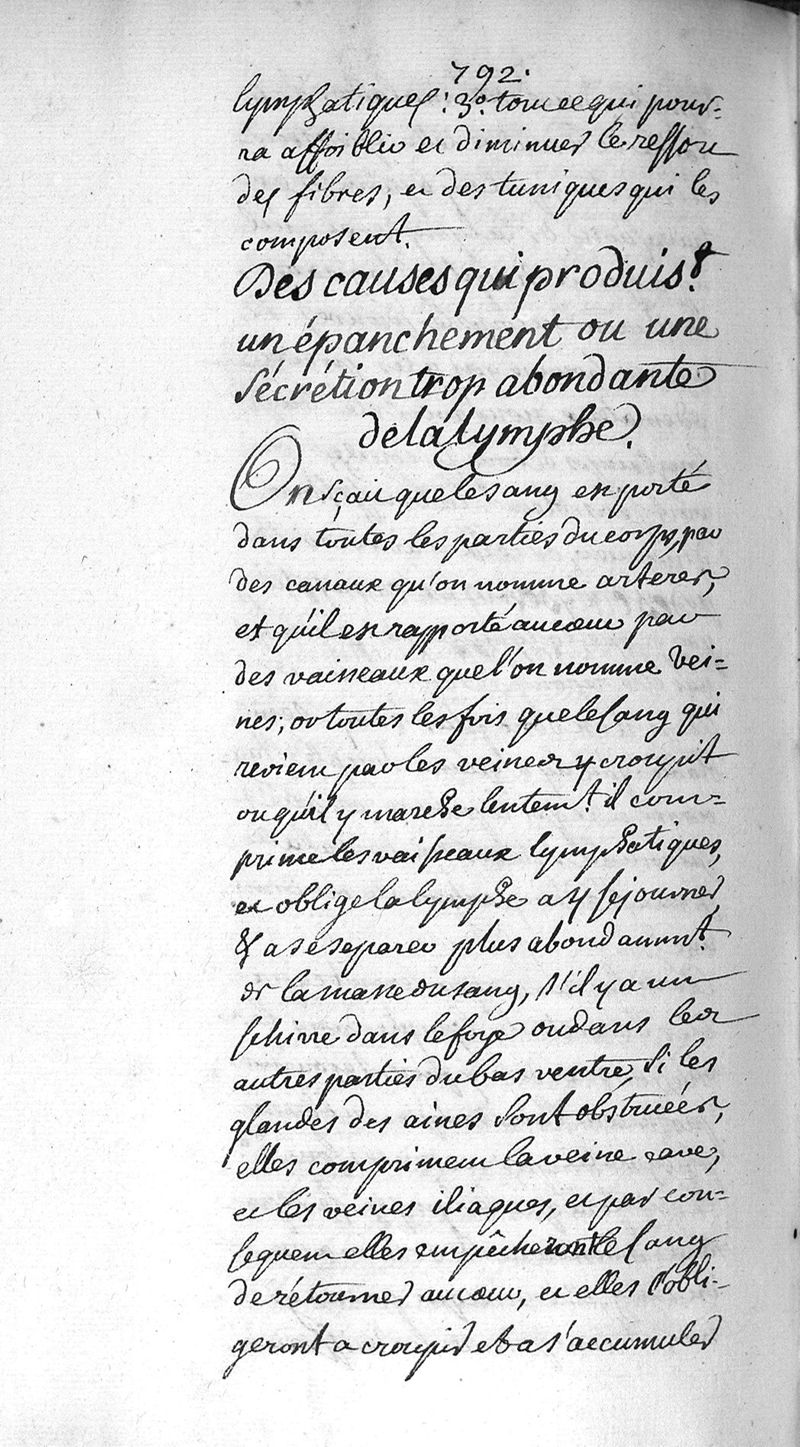 792.
lymphatiques: 3.º tout ce qui pour-
ra affoiblir et diminuer le ressort
des fibres, et des tuniques qui les
composent.
Des causes qui produis.t
un épanchement ou une
sécrétion trop abondante
de la lymphe.
On sçait que le sang est porté
dans toutes les parties du corps, par
des canaux qu'on nomme arteres,
et qu'il est rapporté au cœur par
des vaisseaux que l'on nomme vei=
nes; or toutes les fois que le sang qui
revient par les veines y croupit
ou qu'il y marche lentem.t il com=
prime les vaisseaux lymphatiques,
et oblige la lymphe a y sejourner
& a se separer plus abondamm.t
de la masse du sang, s'il y a un
schirre dans le foye ou dans les
autres parties du bas ventre, si les
glandes des aines sont obstruées,
elles compriment la veine cave,
et les veines iliaques, et par con=
sequent elles empêcheront le sang
de rétourner au cœur, et elles l'obli-
geront a croupir et a s'accumuler